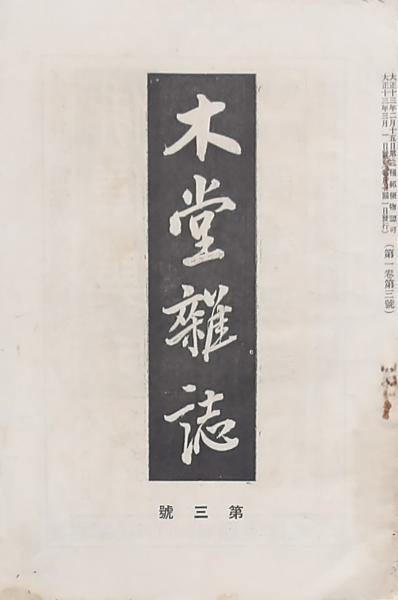 大正十三年二月十五日第三種郵便物認可
大正十三年三月一日發行(每月一回一日發行)
(第一卷第三號)
木堂雜誌
第三號